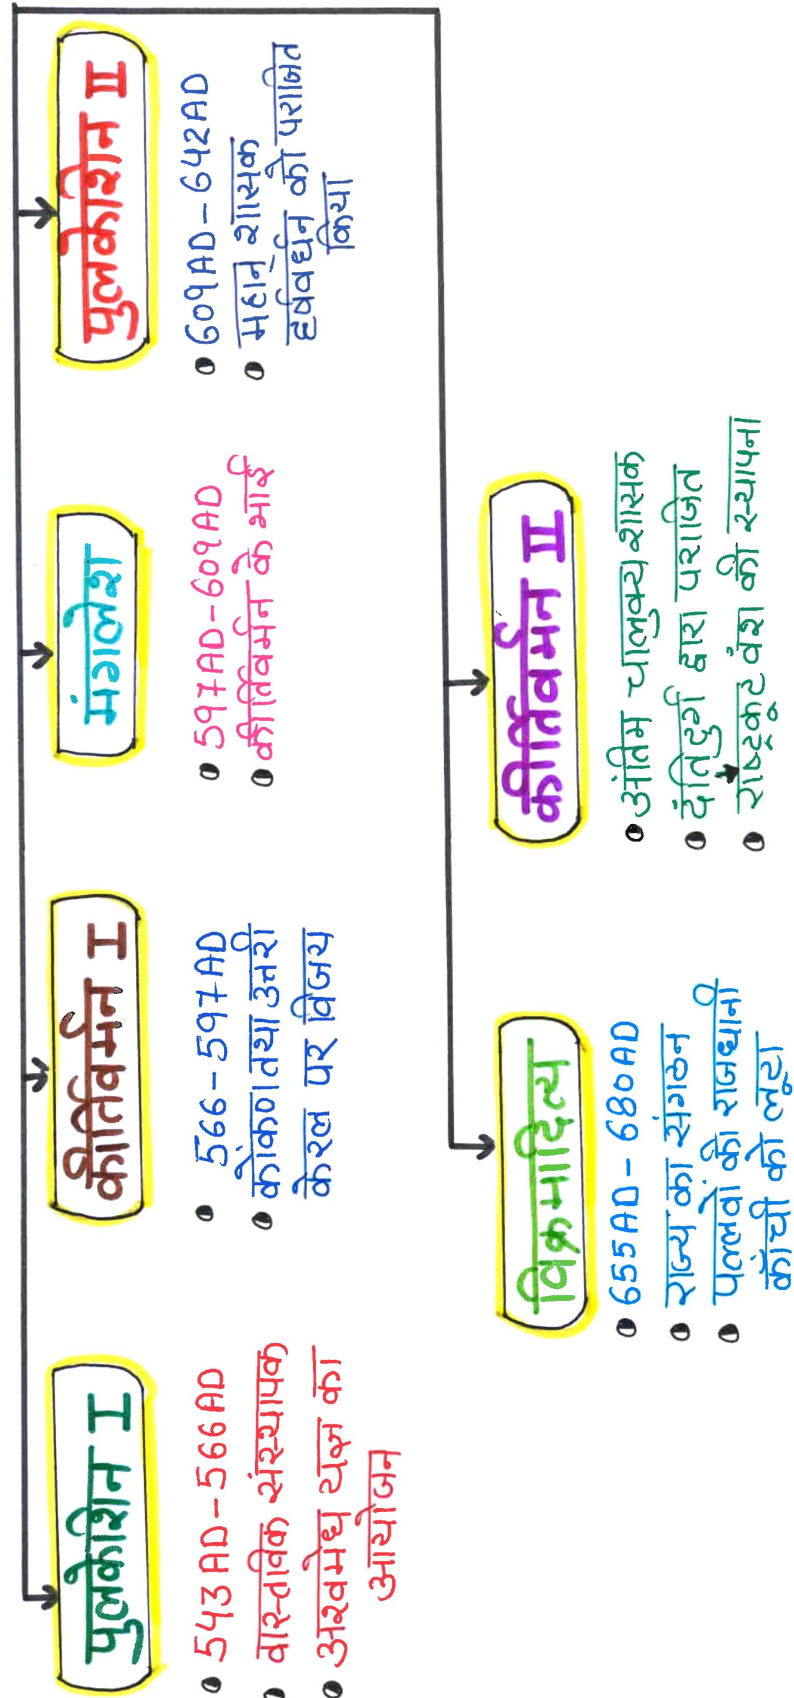 पुलकेशिन I
543 AD - 566 AD
वास्तविक संस्थापक
अश्वमेघ यज्ञ का
आयोजन
कीर्तिवर्मन I
566 - 597 AD
कोंकण तथा उत्तरी
केरल पर विजय
मंगलेश
597AD - 609AD
कीर्तिवर्मन के भाई
पुलकेशिन II
609AD - 642AD
महान शासक
हर्षवर्धन को पराजित
किया
विक्रमादित्य
655AD - 680AD
राज्य का संगठन
पल्लवों की राजधानी
काँची को लूटा
कीर्तिवर्मन II
अंतिम चालुक्य शासक
दंतिदुर्ग द्वारा पराजित
राष्ट्रकूट वंश की स्थापना